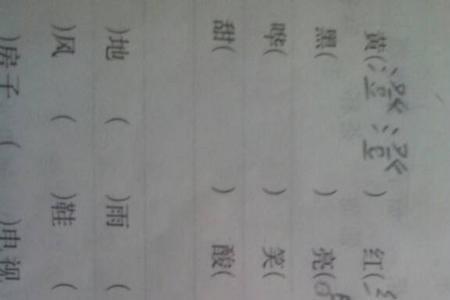 黄(澄澄) 红(
黑( ) 亮(
哗( ) 笑(
甜( ) 酸(
)地 ( )雨 (
)风 ( )鞋 (
)房子 ( )电视